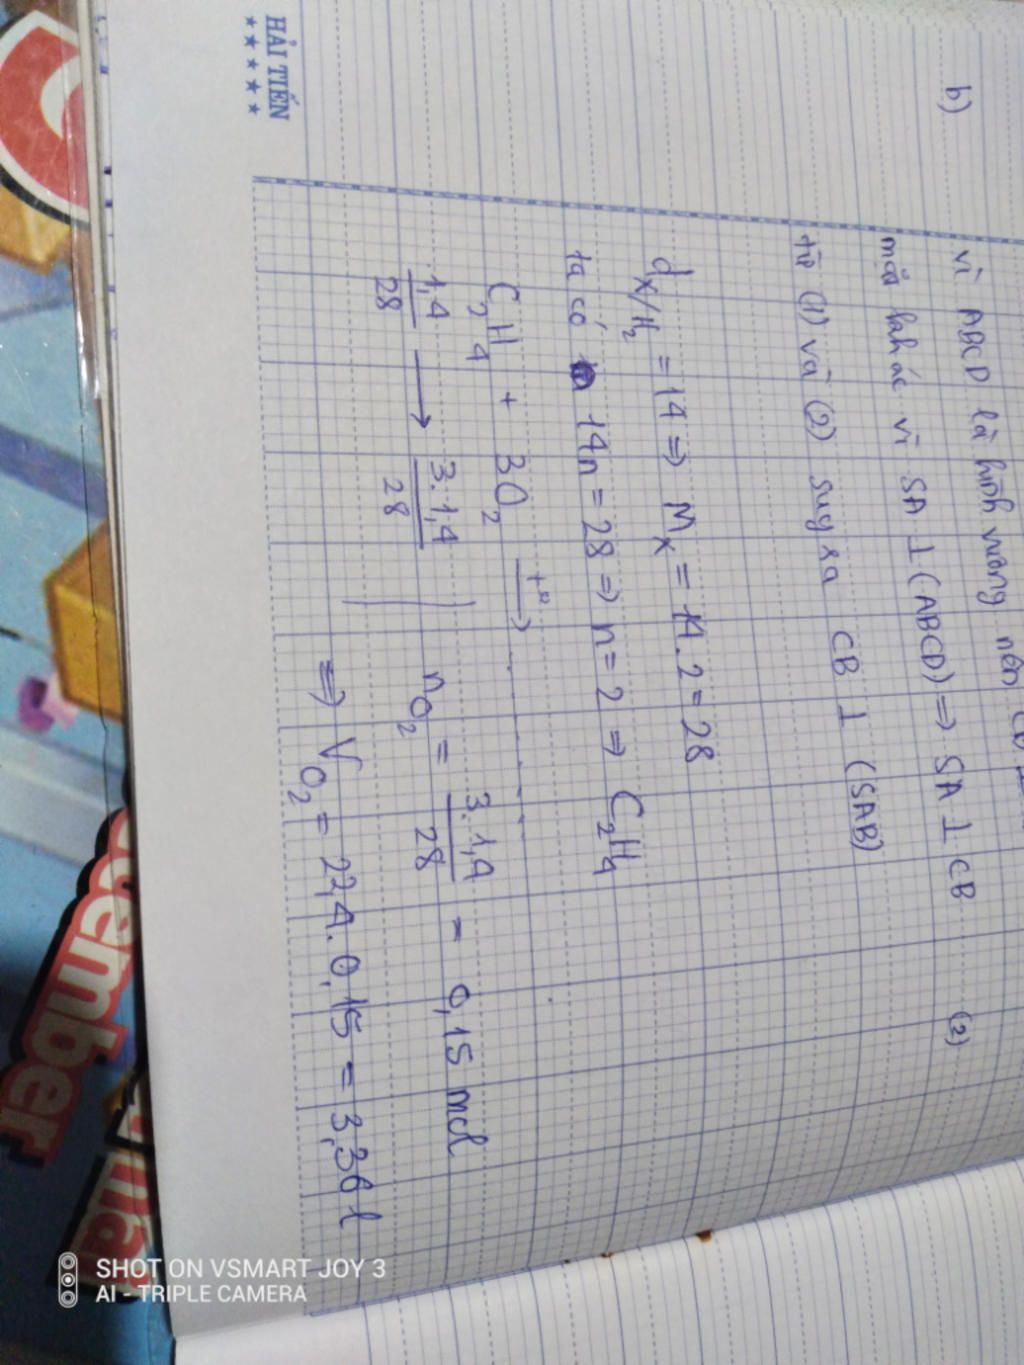 vì ABCD là hình vuông nên CB
mặt khác vì SA ⊥ (ABCD) => SA ⊥ CB (2)
từ (1) và (2) suy ra CB ⊥ (SAB)
b)
d_X/H₂ = 14 => M_X = 14.2 = 28
ta có 14n = 28 => n = 2 => C₂H₄
C₂H₄ + 3O₂ —t°→
1,4/28 → 3.1,4/28
n_O₂ = 3.1,4/28 = 0,15 mol
=> V_O₂ = 22,4.0,15 = 3,36 l
HẢI TIẾN
★★★★★
cember
SHOT ON VSMART JOY 3
AI - TRIPLE CAMERA